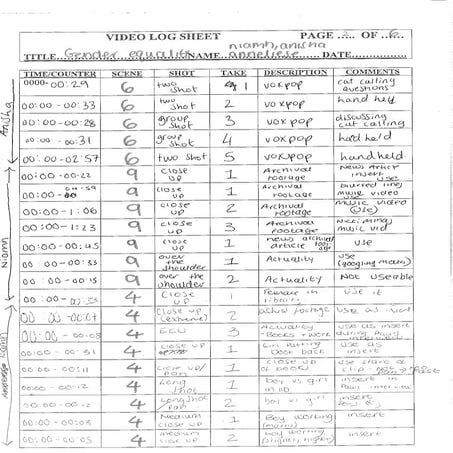 VIDEO LOG SHEET PAGE OF 6
TITLE Gender equality NAME niamh, anisha anneliese DATE
TIME/COUNTER SCENE SHOT TAKE DESCRIPTION COMMENTS
Anisha
0000-00:29 6 two shot 1 voxpop cat calling questions
00:00-00:33 6 two shot 2 voxpop hand held
00:00-00:28 6 group shot 3 voxpop discussing cat calling
00:00-00:31 6 group shot 4 voxpop hand held
00:00-02:57 6 two shot 5 voxpop handheld
Niamh
00:00-00:22 9 close up 1 Archival footage News Article insert use
00:00- 9 close up 1 Archival footage blurred lines music video
00:00-1:06 9 close up 2 Archival footage music video (use)
00:00-1:23 9 close up 3 Archival footage music vid
00:00-00:45 9 close up 1 news article use
00:00-00:33 9 over the shoulder 1 Actuality use
00:00-00:15 9 over the shoulder 2 Actuality Not useable
00:00-00:33 4 close up 1 in library use it
4 close up 2 use as
00:00-00:08 4 ECU 3 Actuality use as insert during
00:00-00:31 4 close up 1 Girl putting book back use as insert
00:00-00:11 4 close up/ pan 1 close up of books use
00:00-00:12 4 Long shot 1 boy vs girl insert in
00:00-00:12 4 Long shot pan 2 boy vs girl insert
00:00-00:03 4 Medium close up 1 Boy working insert
00:00-00:05 4 medium close up 2 boy working insert